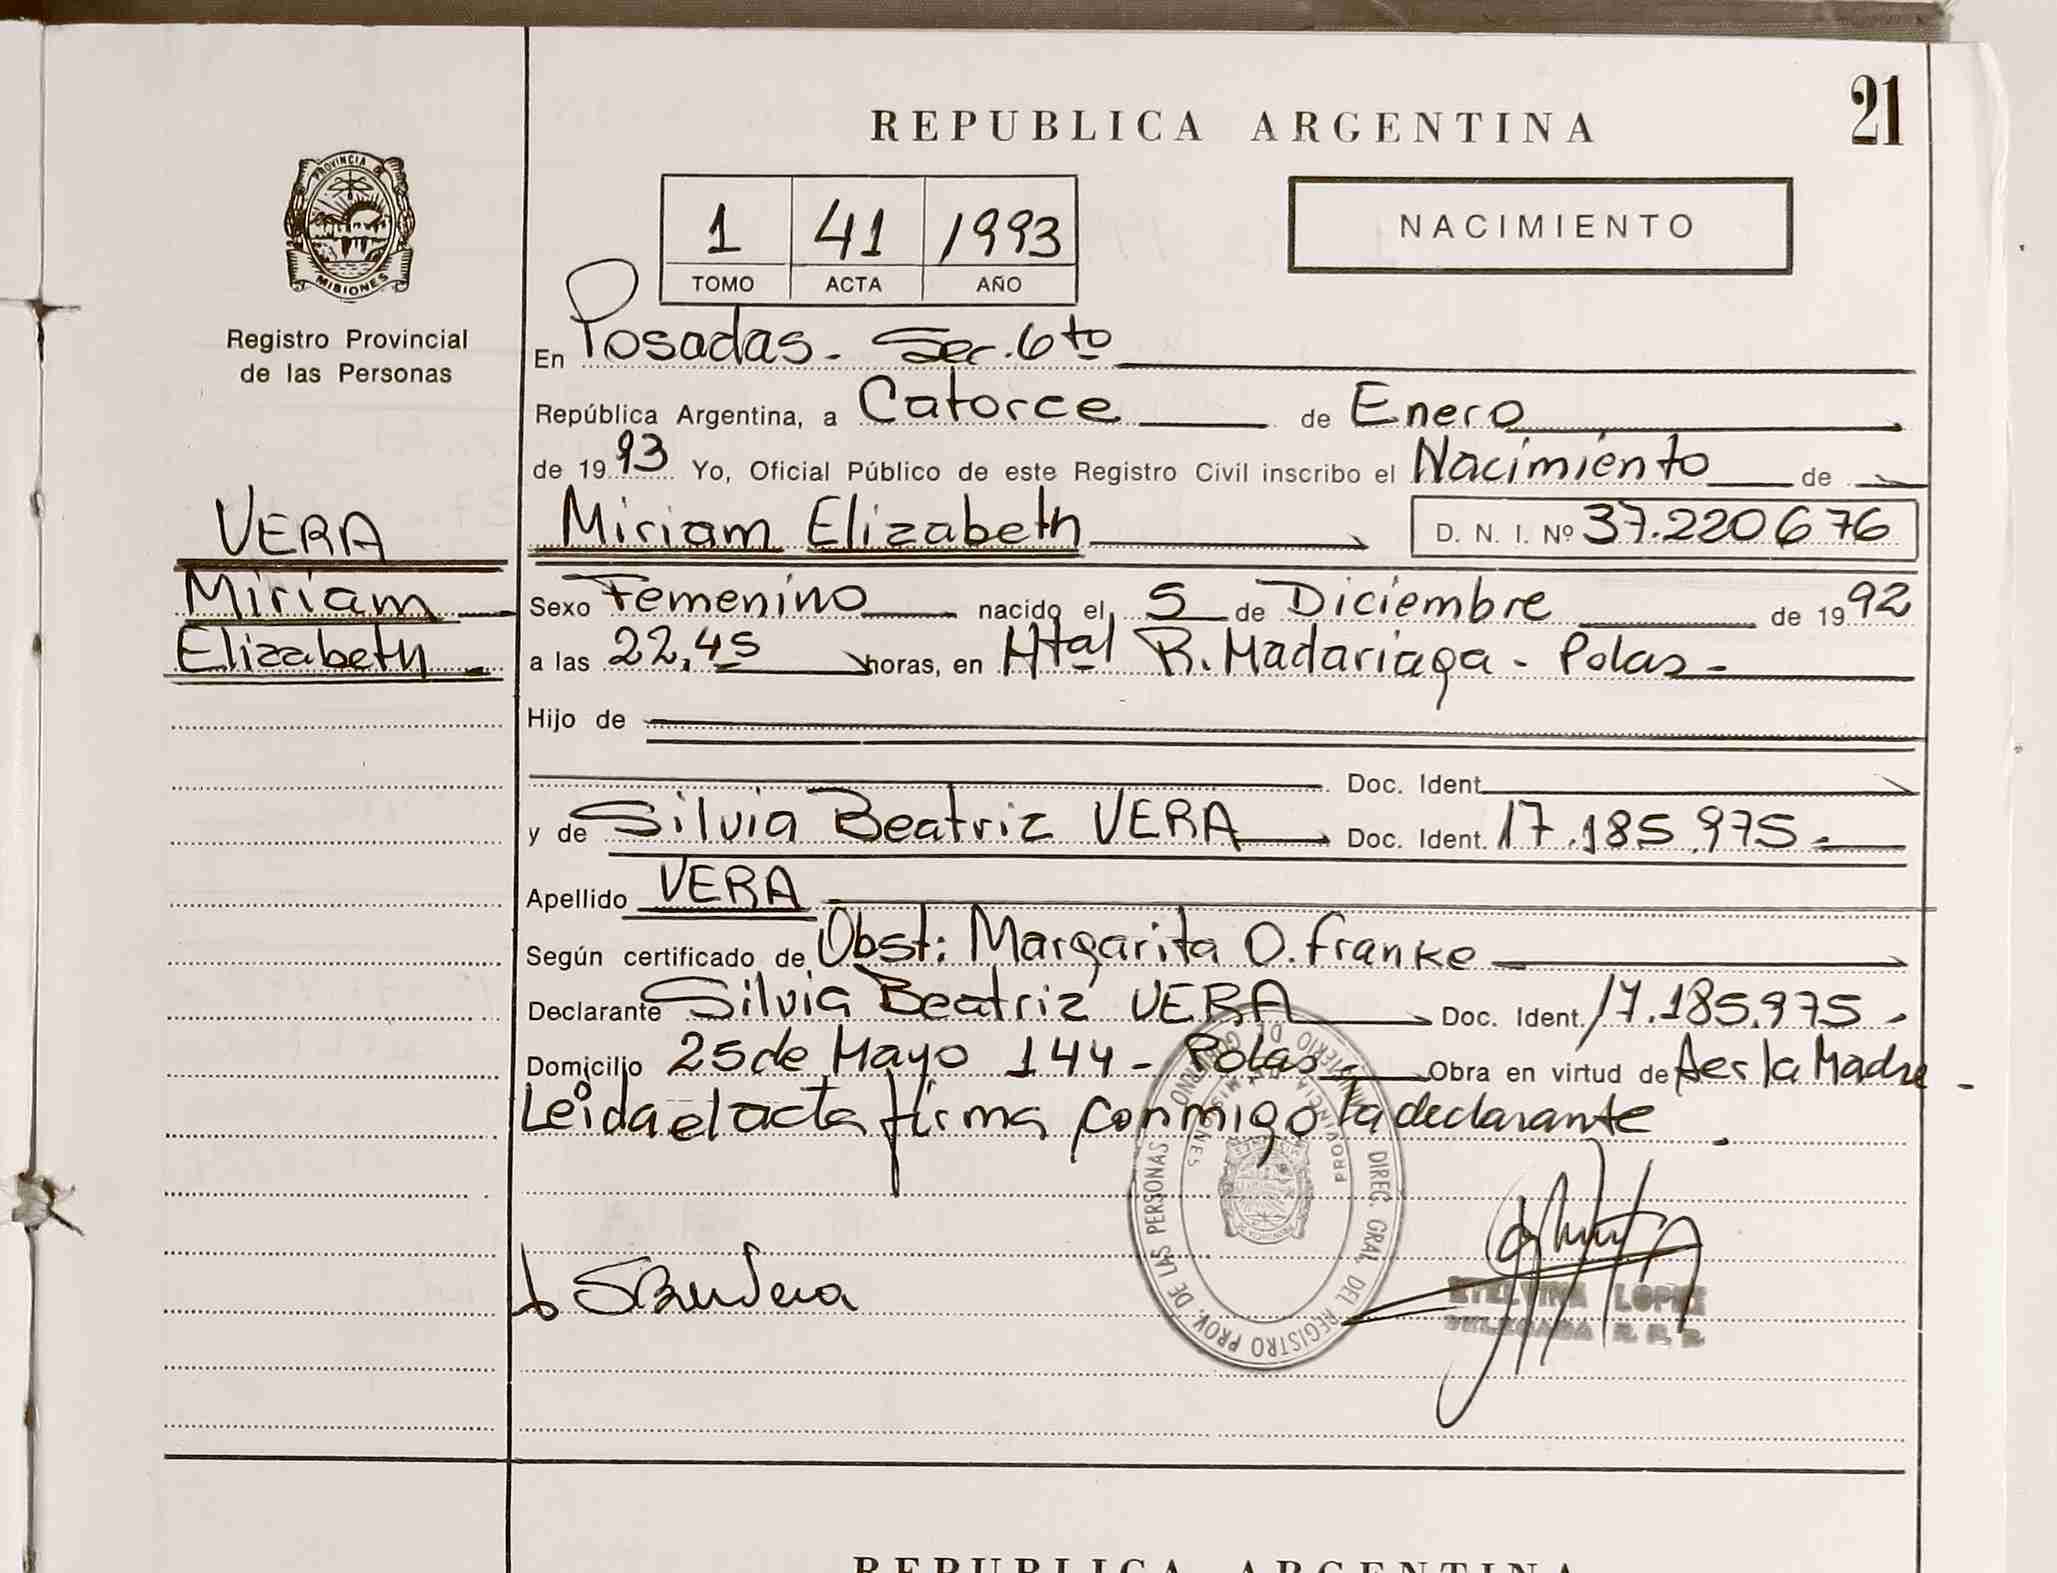 21
REPUBLICA ARGENTINA
PROVINCIA DE
MISIONES
Registro Provincial
de las Personas
1 41 1993
TOMO ACTA AÑO
NACIMIENTO
En Posadas. Sec. 6to
República Argentina, a Catorce de Enero
de 1993 Yo, Oficial Público de este Registro Civil inscribo el Nacimiento de
VERA
Miriam
Elizabeth
Miriam Elizabeth D. N. I. Nº 37.220676
Sexo Femenino nacido el 5 de Diciembre de 1992
a las 22,45 horas, en Htal R. Madariaga - Pdas -
Hijo de
Doc. Ident.
y de Silvia Beatriz VERA Doc. Ident. 17.185.975.-
Apellido VERA
Según certificado de Obst: Margarita O. Franke
Declarante Silvia Beatriz VERA Doc. Ident. 17.185.975.
Domicilio 25 de Mayo 144 - Pdas. Obra en virtud de Ser la Madre -
Leída el acta firma conmigo la declarante.
DIREC. GRAL. DEL REGISTRO PROV. DE LAS PERSONAS
MINISTERIO DE GOBIERNO
PROVINCIA DE MISIONES
LOPEZ
DELEGADA R. P. P.
REPUBLICA ARGENTINA